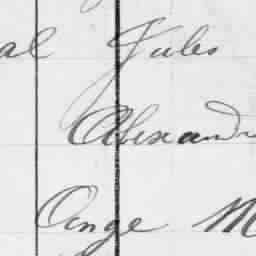 al Jules
Alexandr
Ange M